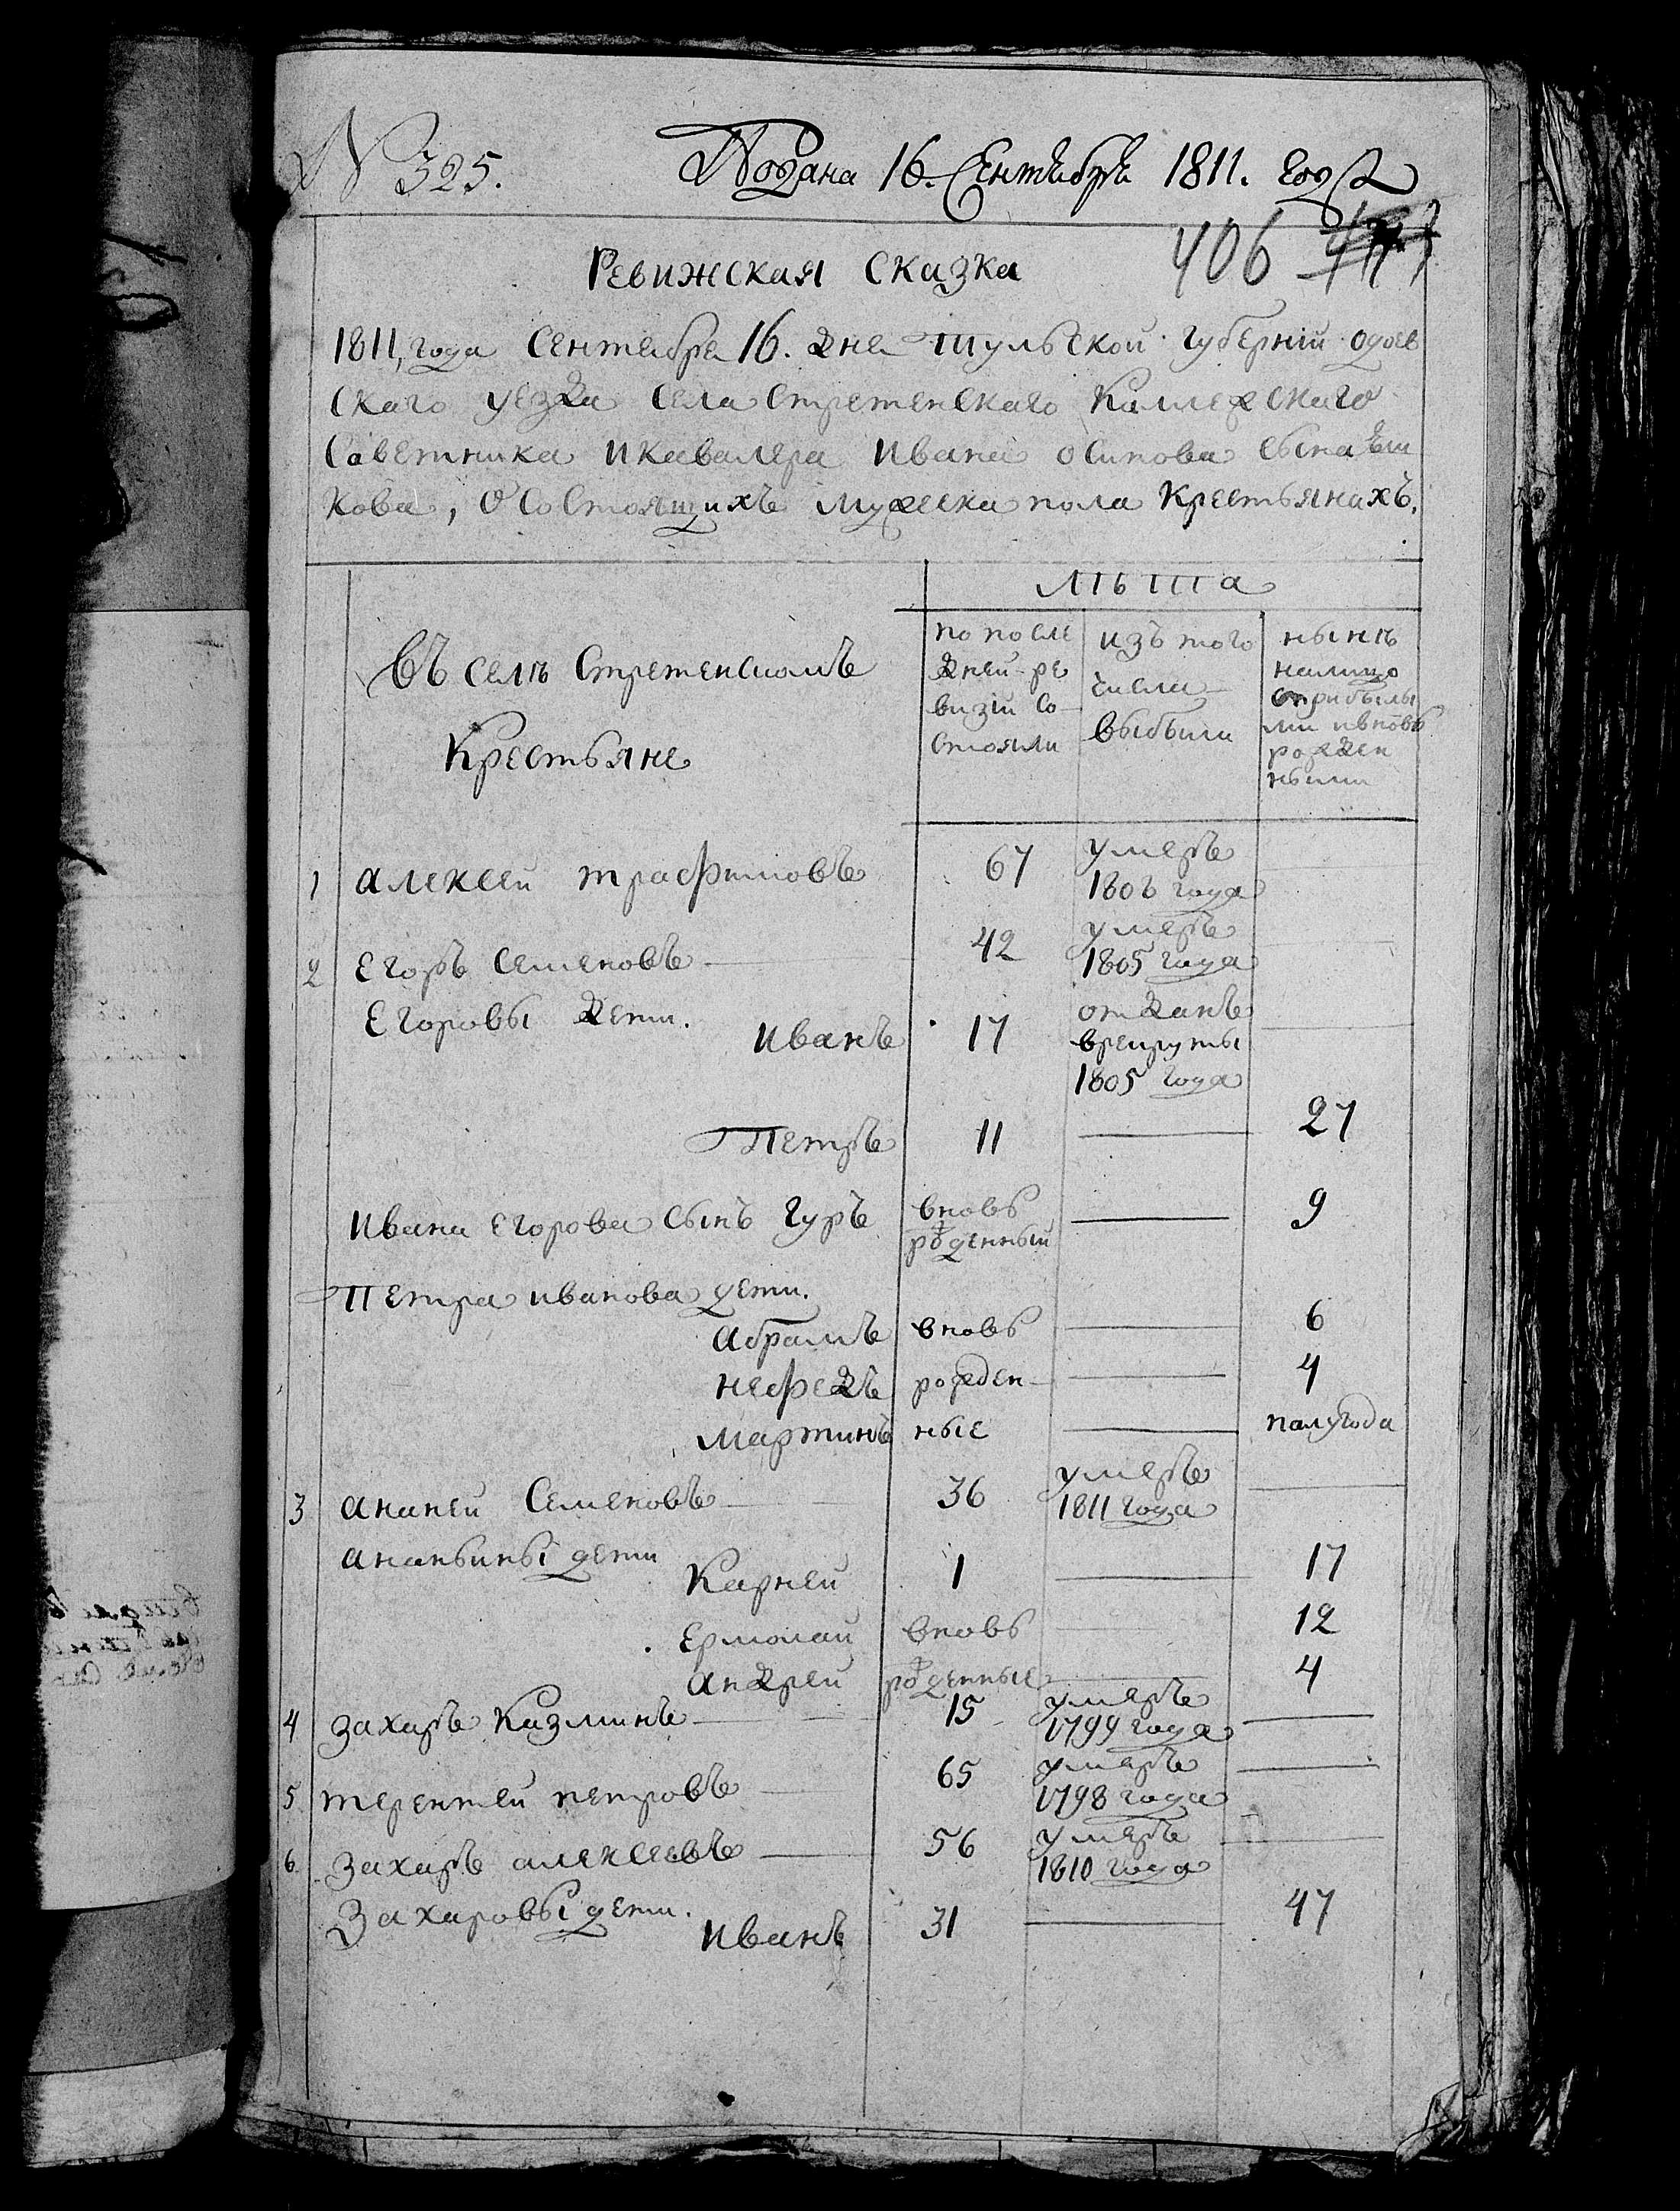 N 325. Подана 16. Сентебря 1811. года
406
Ревижская сказка
1811, года Сентебря 16. дня Тульской губернiи одоев
скаго уезда села стретенскаго Коллежскаго
Саветника и кавалера Ивана осипова сына
кова, о состоящихъ мужеска пола Крестьянахъ.
лѣта
Въ селѣ Стретенскомъ
Крестьяне
по после
дней ре
визiи со
стояли
изъ того
числа
выбыли
нынѣ
налицо
сприбылы
ми ивновь
рожден
ными
1 алексей трафимовъ 67 умеръ
1808 года
2 Егоръ Семеновъ 42 умеръ
1805 года
Егоровы дети. Иванъ 17 отданъ
врекруты
1805 года
Петръ 11 27
Ивана Егорова сынъ Гуръ вновь
рожденный 9
Петра иванова дети.
абрамъ вновь 6
нефедъ рожден 4
мартинъ ные полугода
3 ананей Семеновъ 36 умеръ
1811 года
ананьины дети
Карней 1 17
Ермолай вновь 12
андрей рожденные 4
4 захаръ Казминъ 15 умеръ
1799 года
5 терентей петровъ 65 умеръ
1798 года
6. захаръ алексеевъ 56 умеръ
1810 года
Захаровы дети. Иванъ 31 47